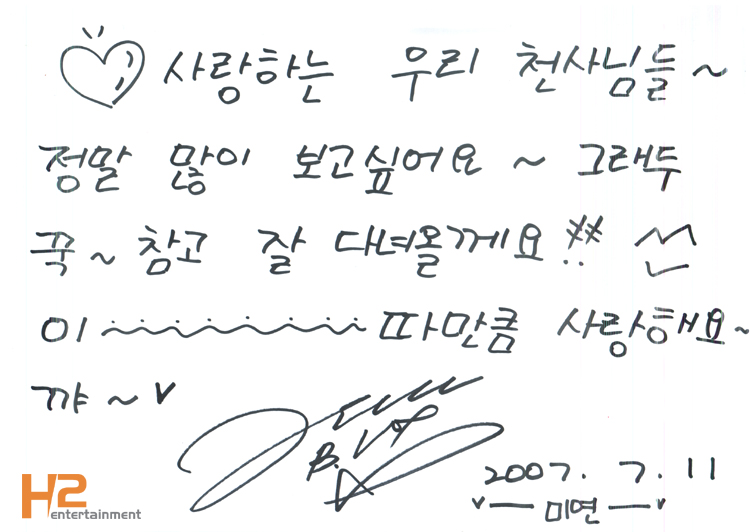 ♡ 사랑하는 우리 천사님들~
정말 많이 보고싶어요 ~ 그래두
꾹~ 참고 잘 다녀올께요 ^^
이~~~~~~~~ 따만큼 사랑해요~
꺄~v
B.
2007. 7. 11
v—미연—v
H2
entertainment